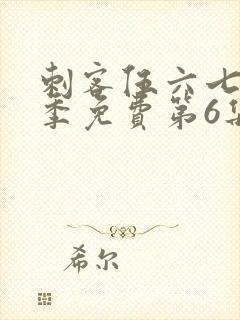 刺客伍六七
季免費第6集
希尔